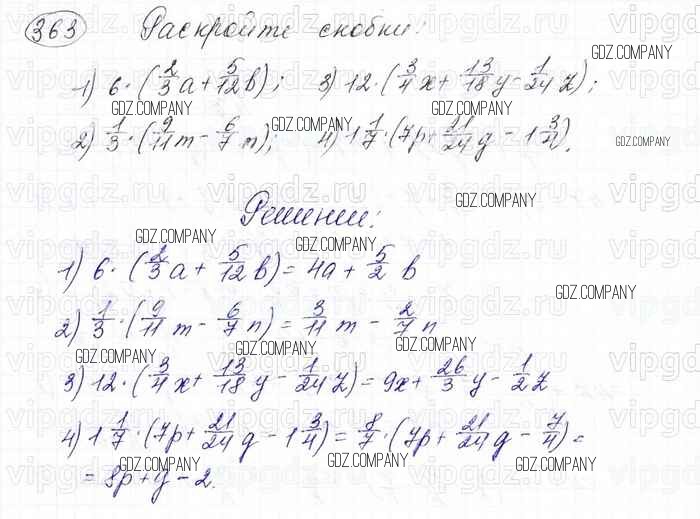 363 Раскройте скобки:
1) 6 · (2/3 a + 5/12 b); 3) 12 · (3/4 x + 13/18 y - 1/24 z);
2) 1/3 · (9/11 m - 6/7 n); 4) 1 1/7 · (7p + 21/24 q - 1 3/4).
Решении:
1) 6 · (2/3 a + 5/12 b) = 4a + 5/2 b
2) 1/3 · (9/11 m - 6/7 n) = 3/11 m - 2/7 n
3) 12 · (3/4 x + 13/18 y - 1/24 z) = 9x + 26/3 y - 1/2 z
4) 1 1/7 · (7p + 21/24 q - 1 3/4) = 8/7 · (7p + 21/24 q - 7/4) =
= 8p + y - 2.
GDZ.COMPANY
vipgdz.ru